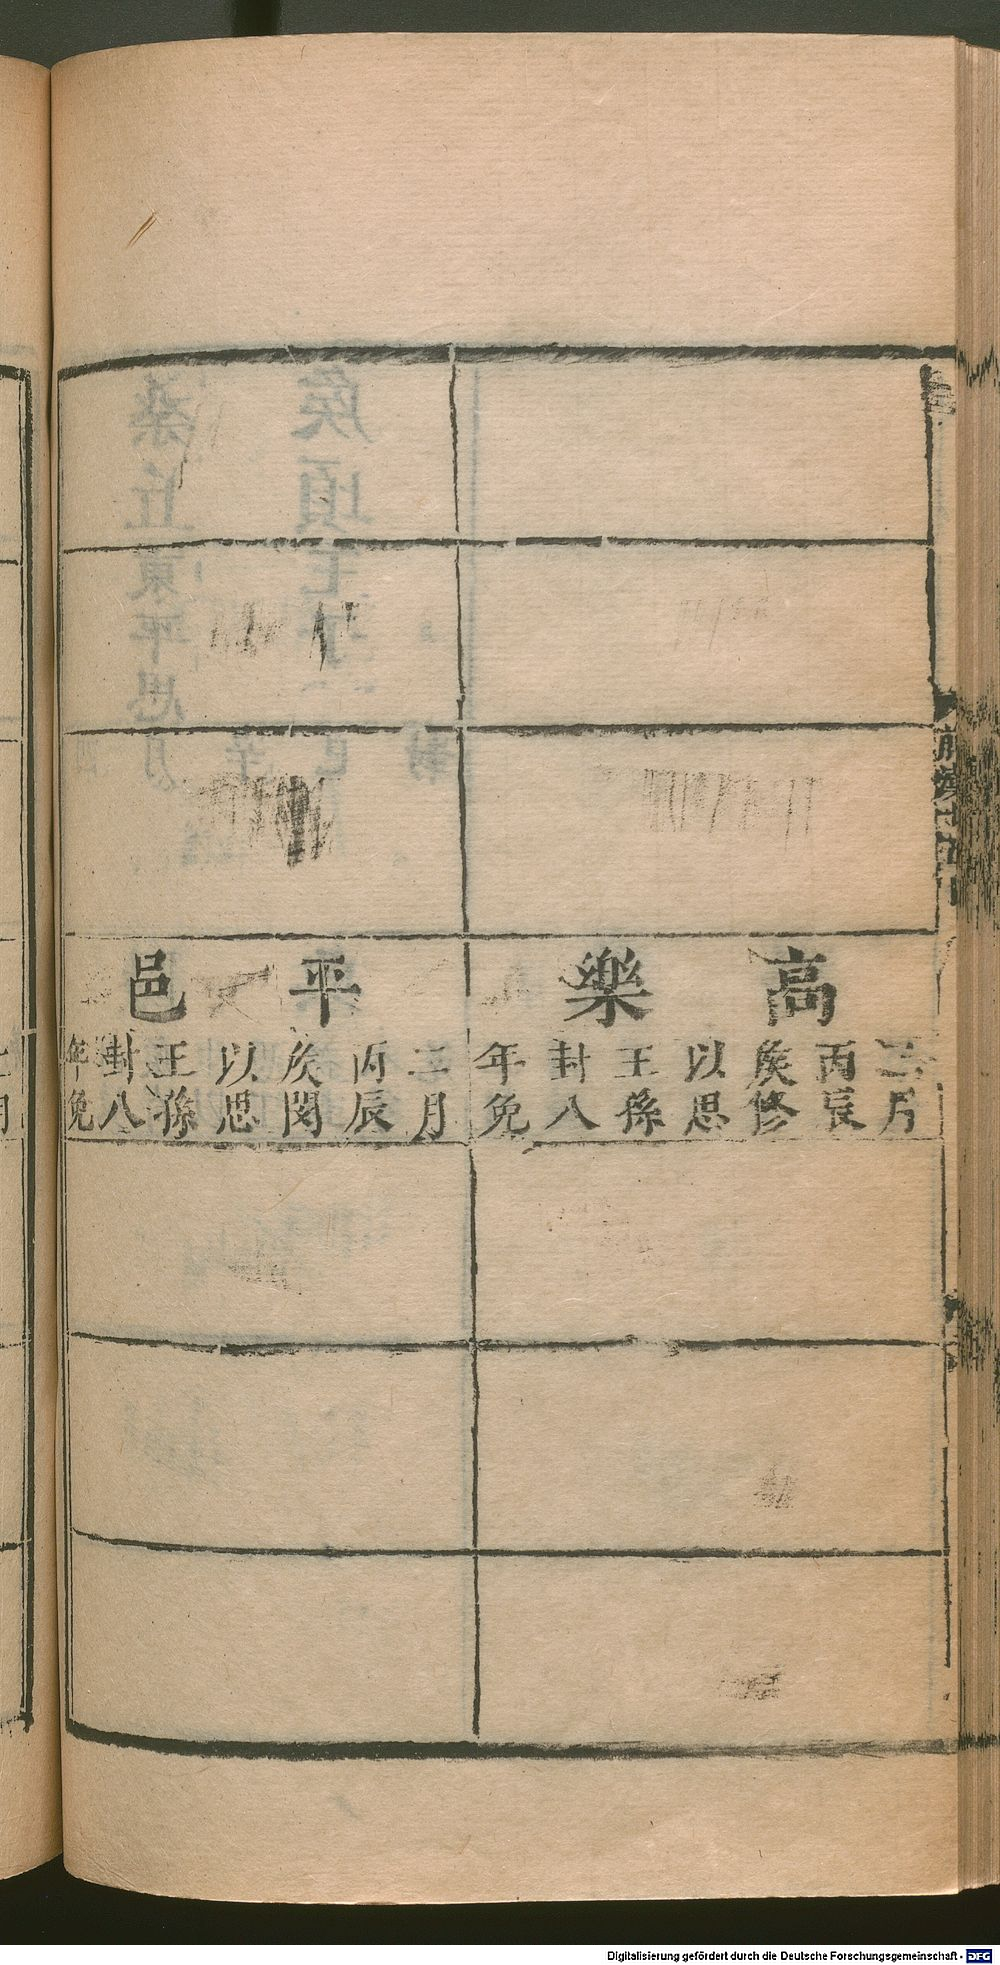 高樂
二月
丙辰
侯修
以思
王孫
封八
年免
平邑
二月
丙辰
侯閔
以思
王孫
封八
年免
前漢十五
Digitalisierung gefördert durch die Deutsche Forschungsgemeinschaft - DFG